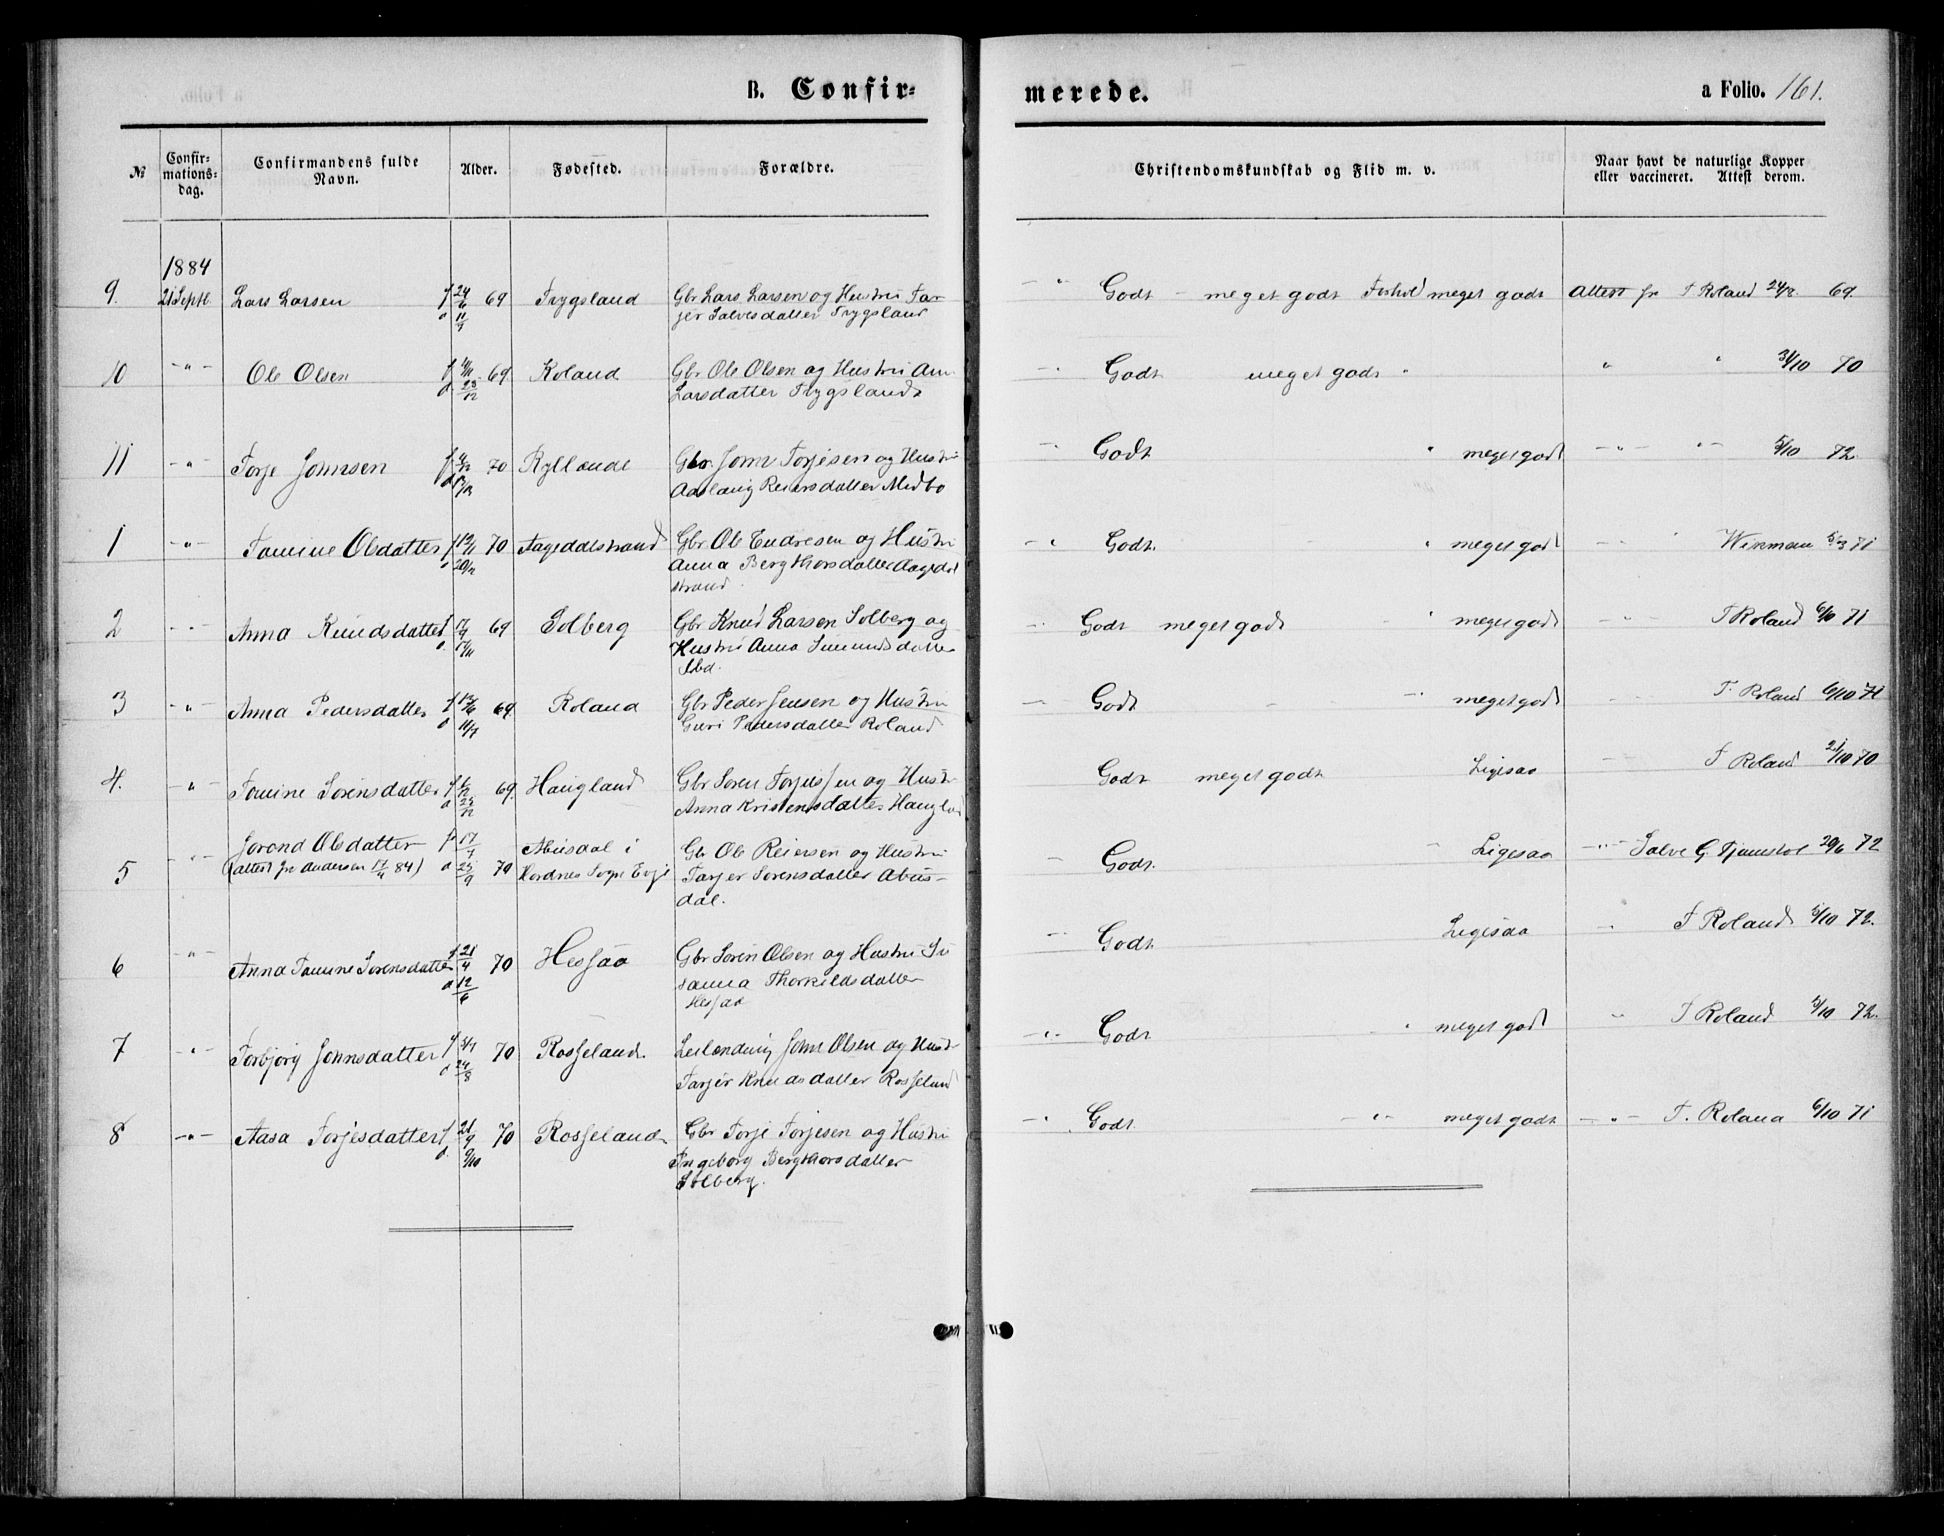 B. Confir-
merede.
a Folio. 161.
№
Confir-
mations-
dag.
Confirmandens fulde
Navn.
Alder.
Fødested.
Forældre.
Christendomskundskab og Flid m. v.
Naar havt de naturlige Kopper
eller vaccineret. Attest derom.
1884
9. 21 Septb. Lars Larsen f 24/6 69 Trygsland Gbr Lars Larsen og Hustru Tar- Godt meget godt Forhold meget godt Attest fr T Roland 24/8 69.
d 11/7 jer Salvesdatter Trygsland
10 -"- Ole Olsen 69 Roland Gbr Ole Olsen og Hustru Godt meget godt " " " 31/10 70
d 23/12 Larsdatter Trygsland
11 -"- Torje Johnsen 70 Kyllande Gbr John Torjesen og Hustru Godt " meget godt -"- -"- 5/10 72.
Aaslaug Reiersdatter Medbo
1 -"- Tomine Olsdatter 70 Aageddelstrand Gbr Ole Endresen og Hustru Godt. " meget godt 71
d 20/12 Anna Bergthorsdatter Aagedel
strand.
2 -"- Anna Knudsdatter f 17/9 69 Solberg Gbr Knud Larsen Solberg og Godt meget godt " meget godt T Roland 6/10 71
d. 17/11 Hustru Anna Simundsdatter
Ibd.
3 -"- Anna Pedersdatter 69 Roland Gbr Peder Jensen og Hustru Godt -"- meget godt T. Roland 6/10 71
d 11/7 Guri Pedersdatter Roland
4. " Tomine Sørensdatter 69. Haugland Gbr Søren Torjussen og Hustr Godt meget godt Ligesaa T Roland 21/10 70
d 23/12 Anna Kristensdatter Haugla
5 -"- Jorond Olsdatter f 17/7 70 Abusdal i Gbr Ole Reiersen og Hustru Godt. " Ligesaa -"- Salve G. 29/6 72
(attest fra Andersen 17/4 84) d 25/9 Hordnes Sogn Evje Tarjer Sørensdatter Abus-
dal.
6 " Anna Tomine Sorensdatter f 21/4 70 Hessaa Gbr Søren Olsen og Hustru Su Godt Ligesaa " T Roland 5/10 72.
d 12/6 sanna Thorkildsdatter
Hessaa
7 -"- Torbjørg Johnsdatter 70 Rosseland. Leilænding John Olsen og Hustr -"- Godt -"- meget godt " T Roland 5/10 72.
d 24/8 Tarjer Knudsdatter Rosseland
8 -"- Aasa Torjesdatter f 21/9 70 Rosseland Gbr Torje Torjesen og Hustru -"- Godt. -"- meget godt -"- T. Roland 6/10 71
d. 9/10 Ingeborg Bergthorsdatter
Solberg.